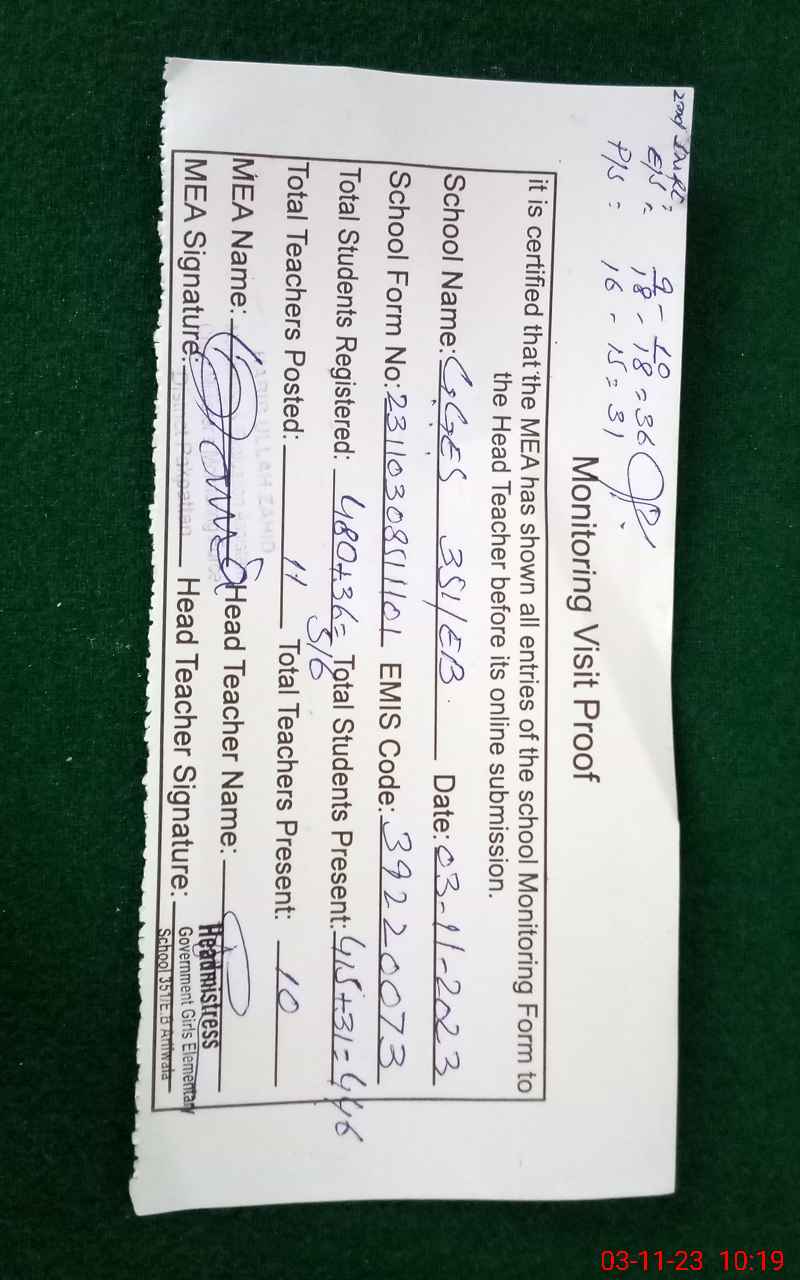 9 - 10
E/S : 18 - 18 = 36
P/S : 16 - 15 = 31
Monitoring Visit Proof
it is certified that the MEA has shown all entries of the school Monitoring Form to
the Head Teacher before its online submission.
School Name: GGES 351/EB Date: 03-11-2023
School Form No: 23110308511101 EMIS Code: 39220073
Total Students Registered: 480+36= 516 Total Students Present: 415+31=446
Total Teachers Posted: 11 Total Teachers Present: 10
MEA Name: Head Teacher Name:
MEA Signature: Head Teacher Signature:
ULLAH ZAHID
District Pakpattan
Headmistress
Government Girls Elementary
School 351/E.B Arifwala
03-11-23 10:19